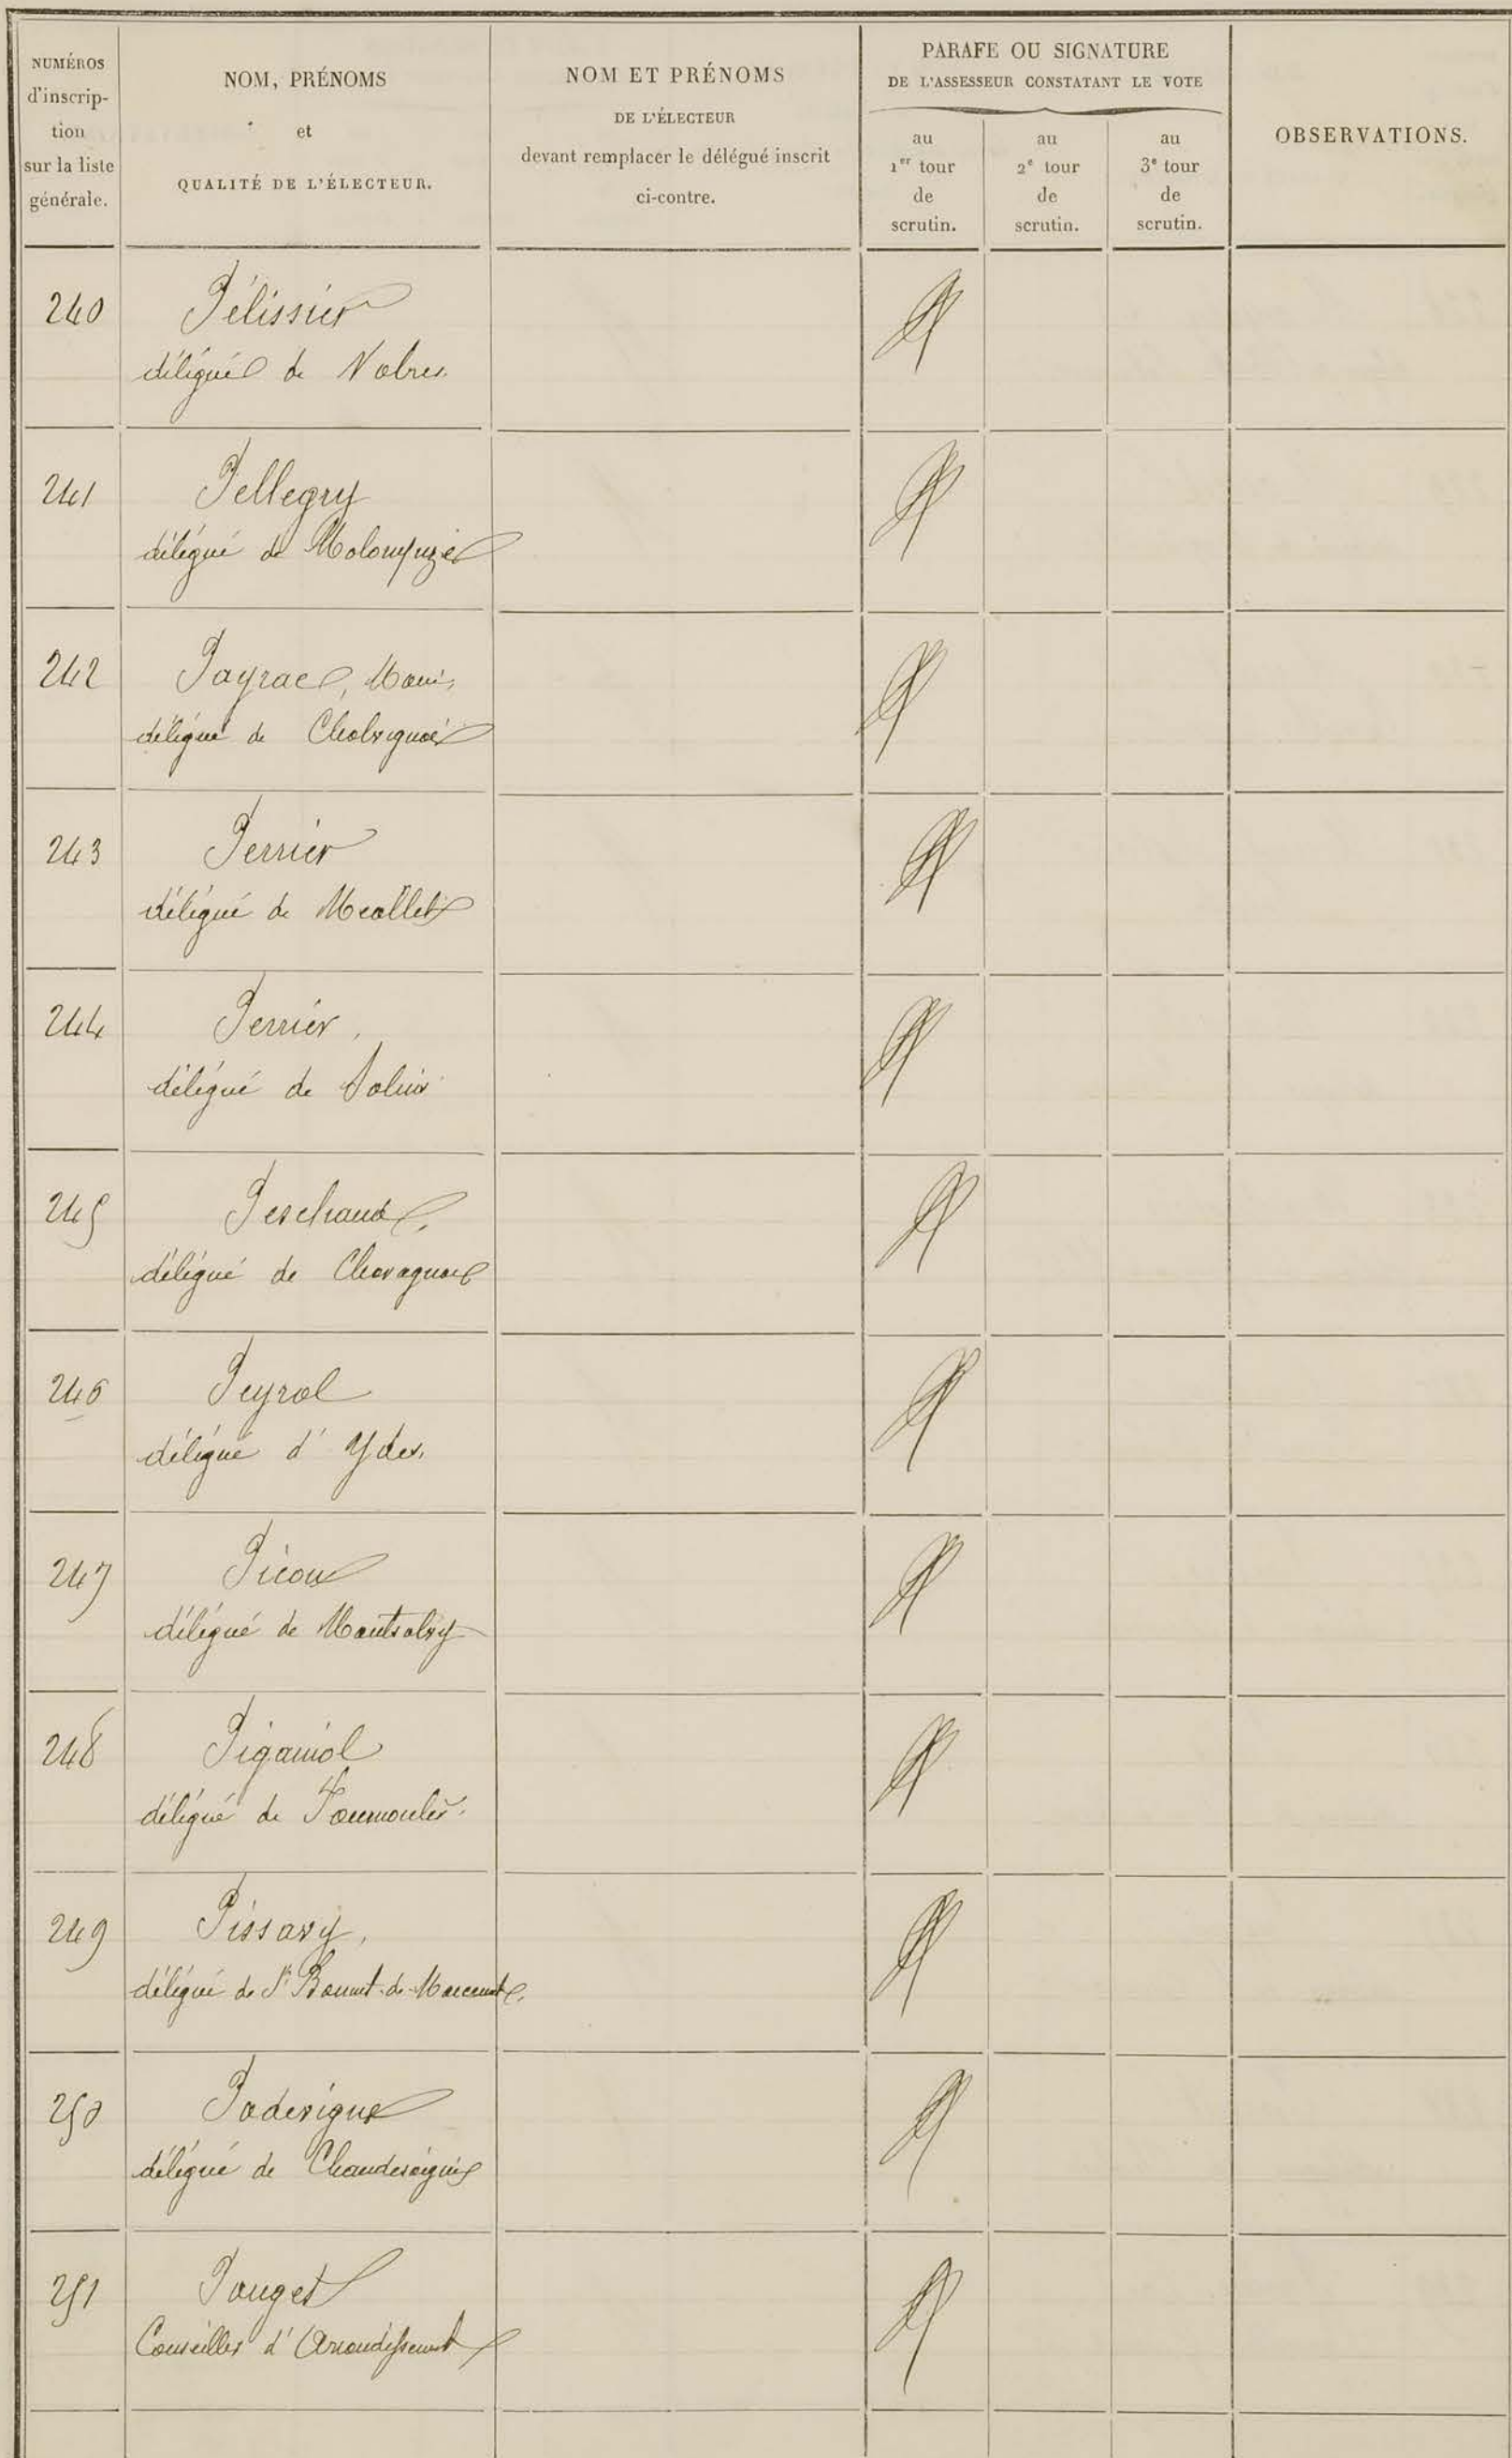 NUMÉROS
d'inscrip-
tion
sur la liste
générale.
NOM, PRÉNOMS
et
QUALITÉ DE L'ÉLECTEUR.
NOM ET PRÉNOMS
DE L'ÉLECTEUR
devant remplacer le délégué inscrit
ci-contre.
PARAFE OU SIGNATURE
DE L'ASSESSEUR CONSTATANT LE VOTE
au
1er tour
de
scrutin.
au
2e tour
de
scrutin.
au
3e tour
de
scrutin.
OBSERVATIONS.
240
Pélissier
délégué de Vabres
241
Pellegry
délégué de Molompize
242
Payrac,
délégué de Chalvignac
243
Perrier
délégué de Méallet
244
Perrier,
délégué de Salins
245
Peschaud,
délégué de Chavagnac
246
Peyrol
délégué d'Ydes.
247
Picou
délégué de Montsalvy
248
Piganiol
délégué de Fournoulès
249
Pissavy,
délégué de St Bonnet-de-Marcenat
250
Poderigue
délégué de Chaudesaigues
251
Pouget
Conseiller d'Arrondissement